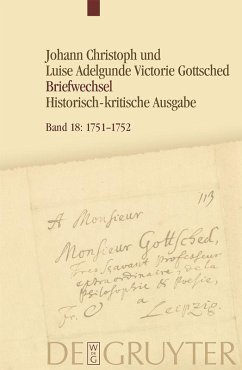 Johann Christoph und
Luise Adelgunde Victorie Gottsched
Briefwechsel
Historisch-kritische Ausgabe
Band 18: 1751–1752
113
A Monsieur
Monsieur Gottsched,
Tres savant Professeur
extraordinaire, de la
Philosophie & Poesie,
Fr. C. a Leipzig.
DE GRUYTER
W
DE
G